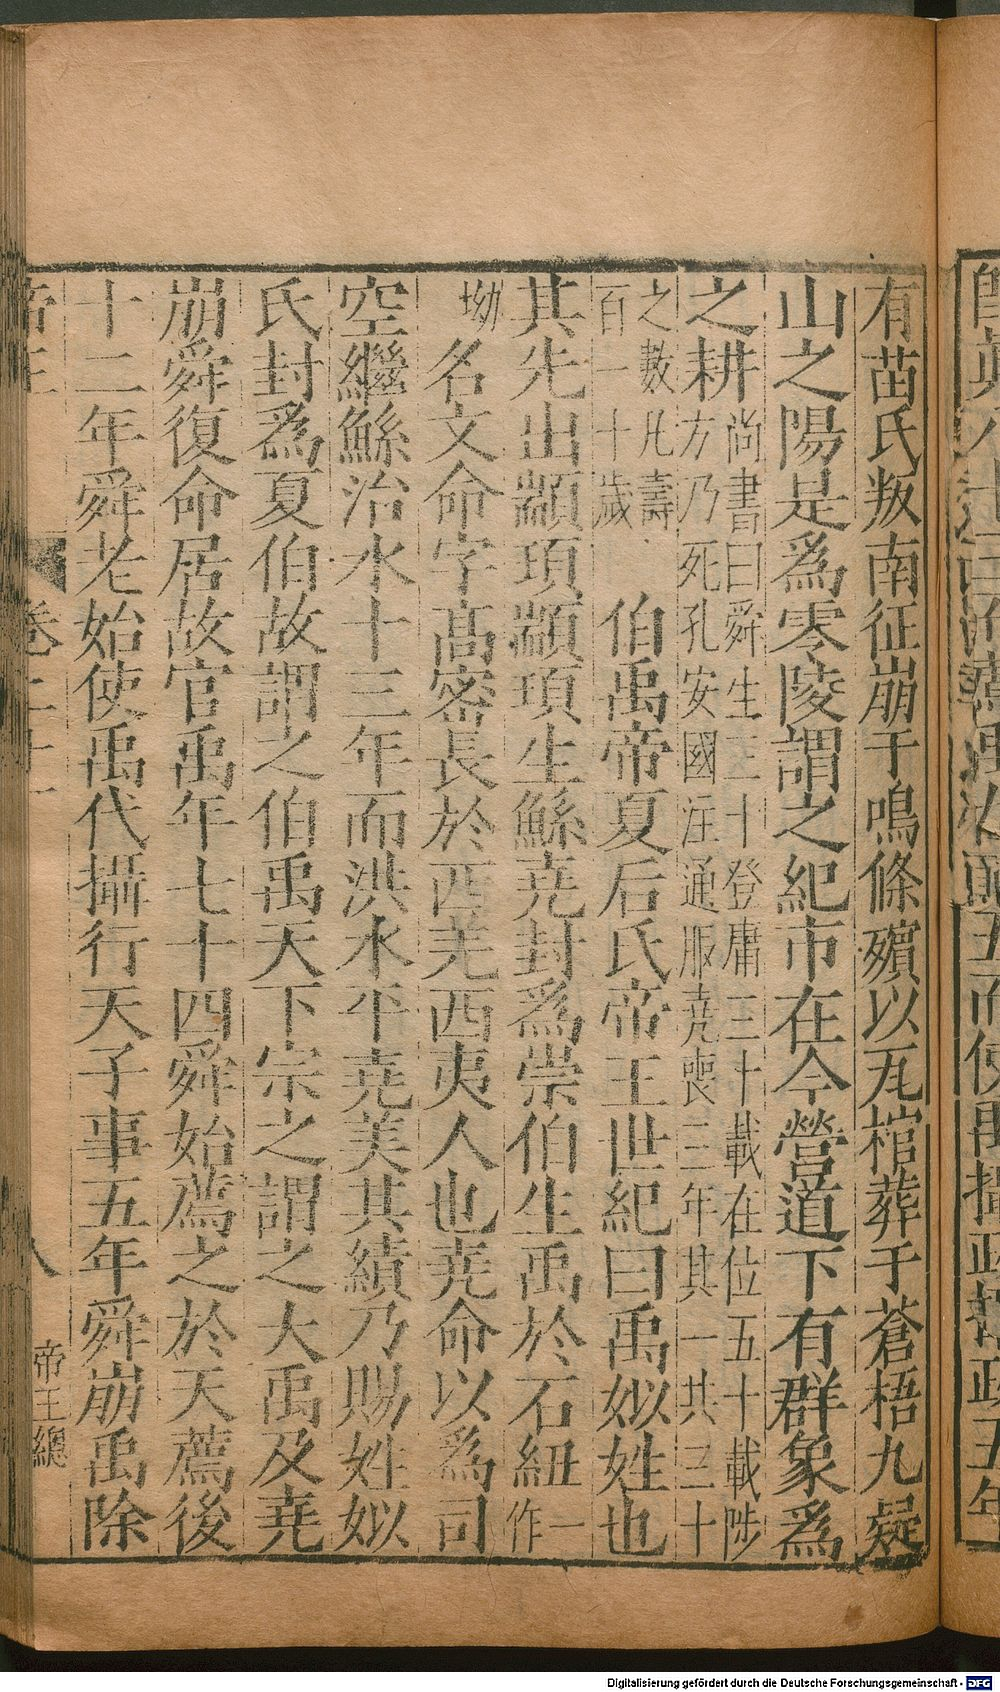 有苗氏叛南征崩于鳴條殯以瓦棺葬于蒼梧九疑
山之陽是爲零陵謂之紀市在今營道下有群象爲
之耕尚書曰舜生三十登庸三十載在位五十載陟方乃死孔安國注通服堯喪三年其一共三十
之數凡壽百一十歲　伯禹帝夏后氏帝王世紀曰禹姒姓也
其先出顓頊顓頊生鯀堯封爲崇伯生禹於石紐一作
坳名文命字高密長於西羌西夷人也堯命以爲司
空繼鯀治水十三年而洪水平堯美其績乃賜姓姒
氏封爲夏伯故謂之伯禹天下宗之謂之大禹及堯
崩舜復命居故官禹年七十四舜始薦之於天薦後
十二年舜老始使禹代攝行天子事五年舜崩禹除
帝王
八
帝王總
Digitalisierung gefördert durch die Deutsche Forschungsgemeinschaft - DFG